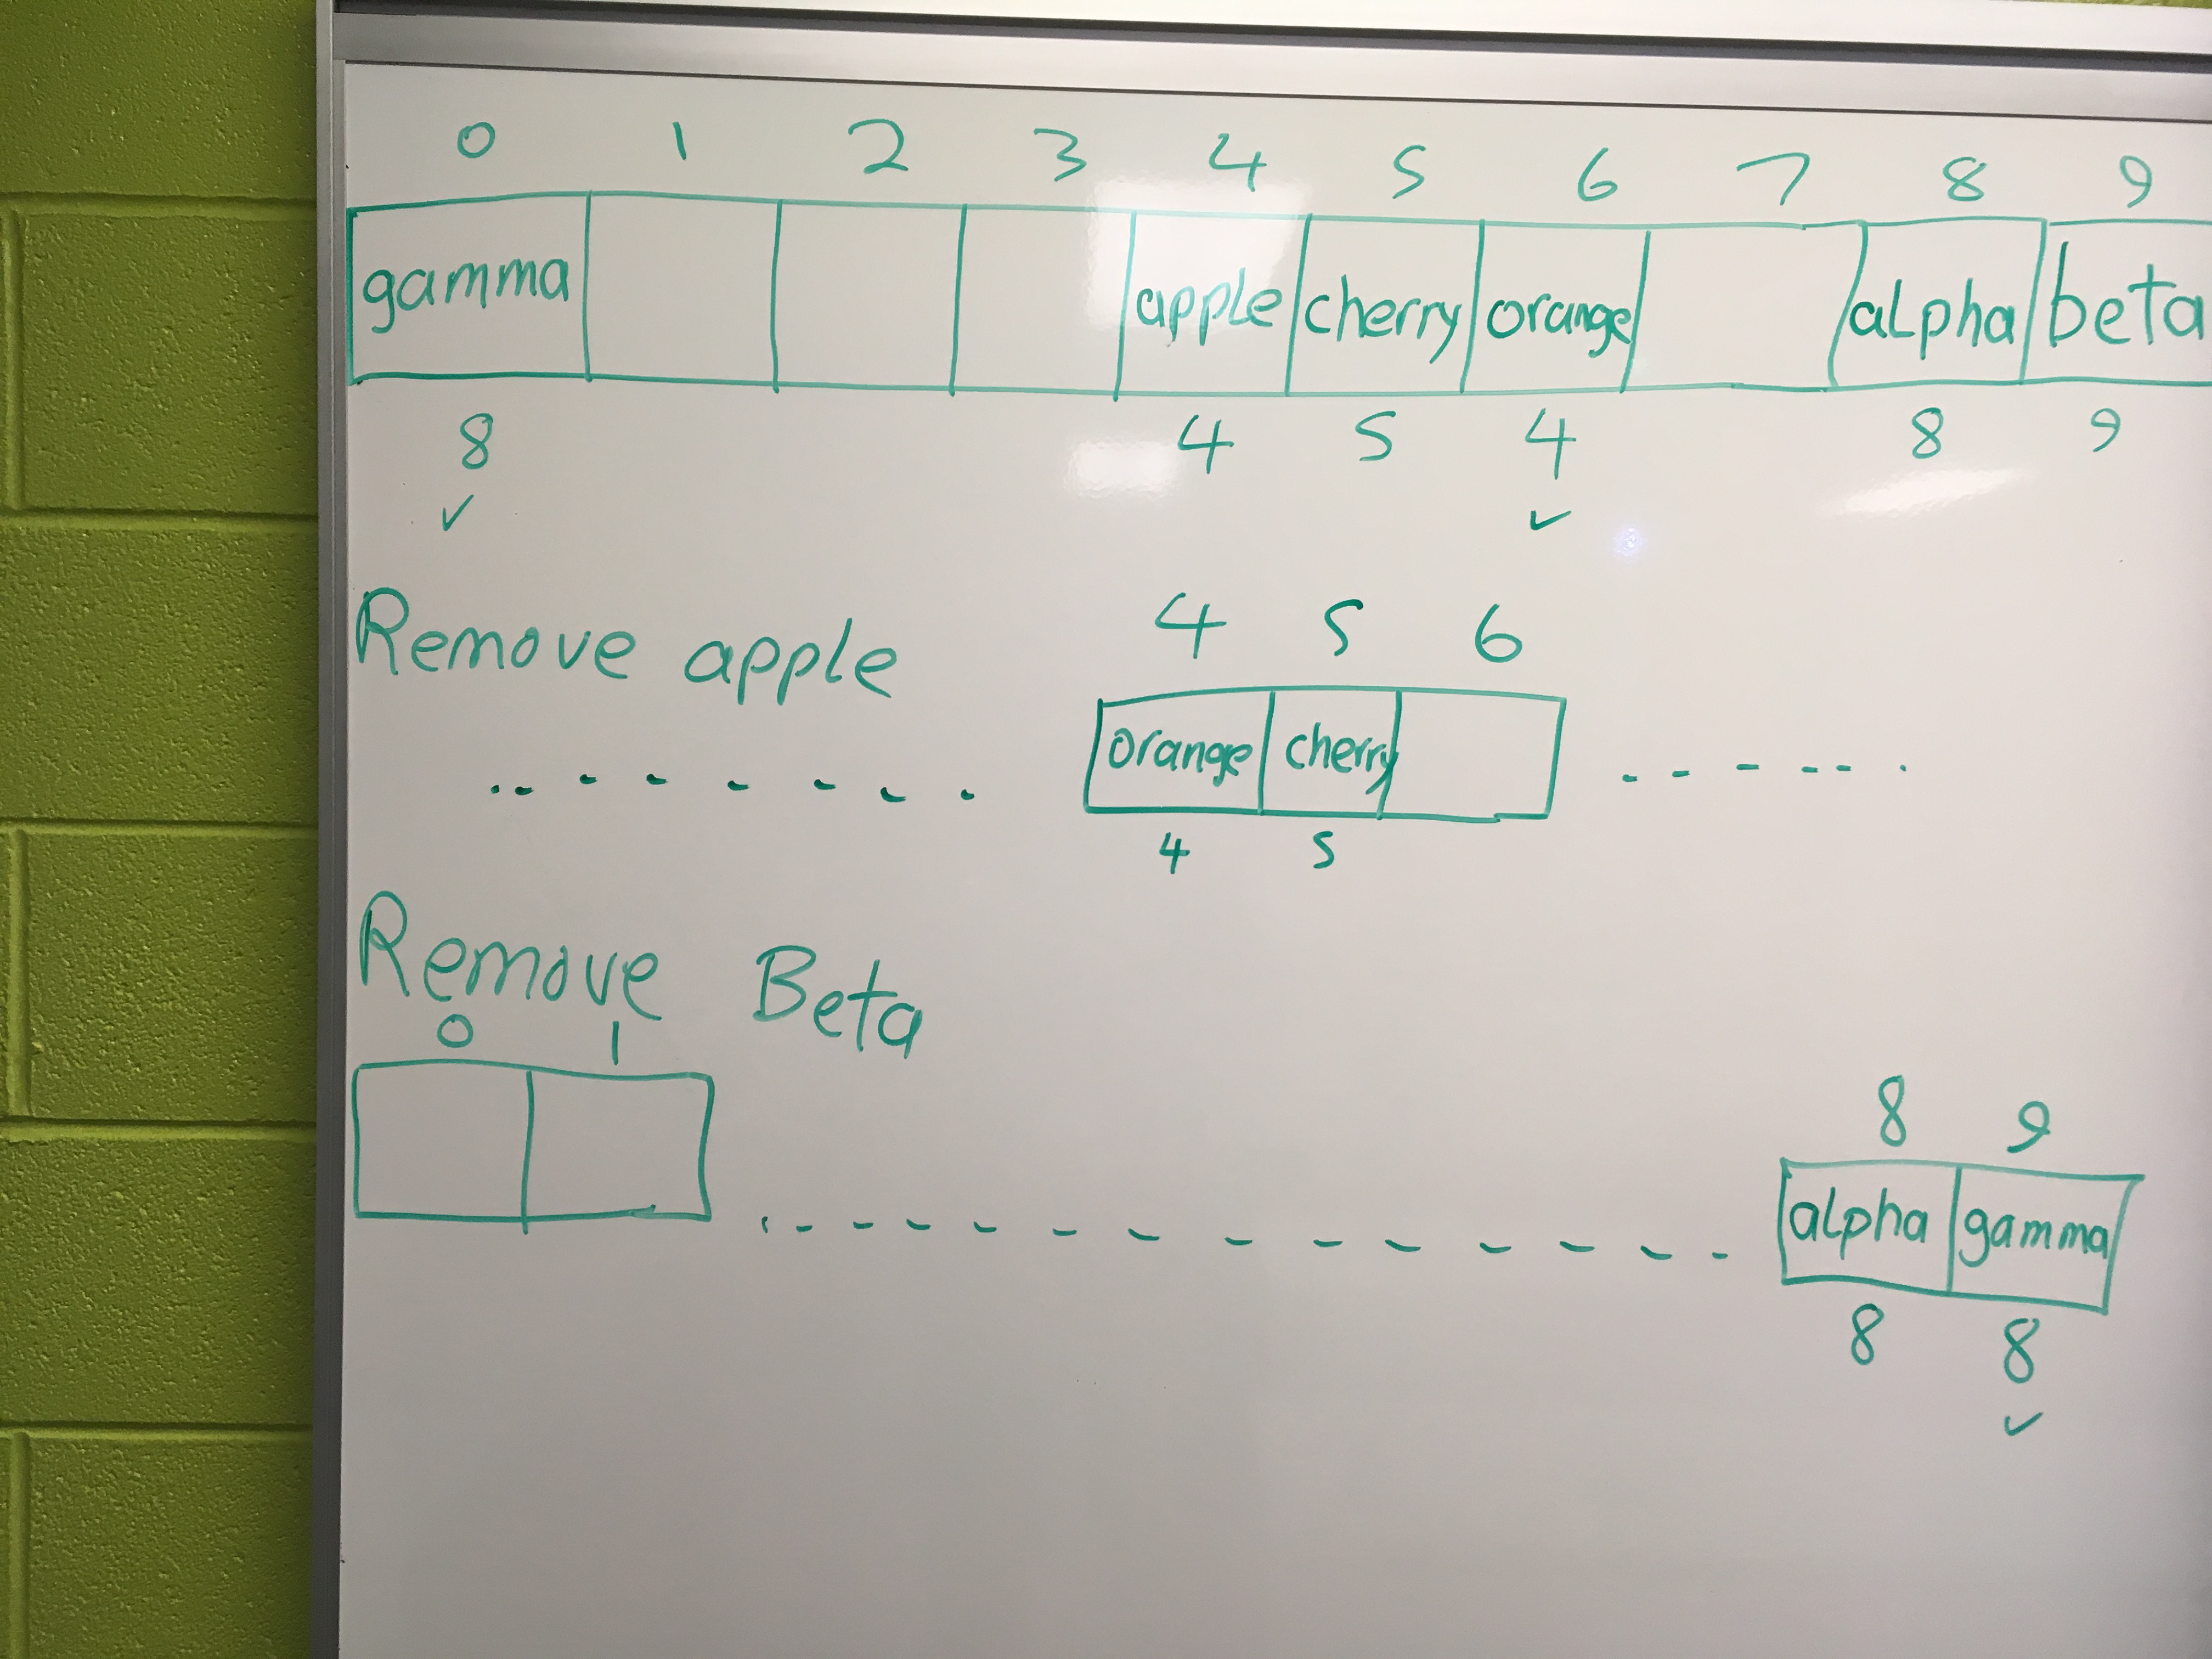 0 1 2 3 4 5 6 7 8 9
gamma apple cherry orange alpha beta
8 4 5 4 8 9
✓ ✓
Remove apple
4 5 6
orange cherry
4 5
Remove Beta
0 1
8 9
alpha gamma
8 8
✓